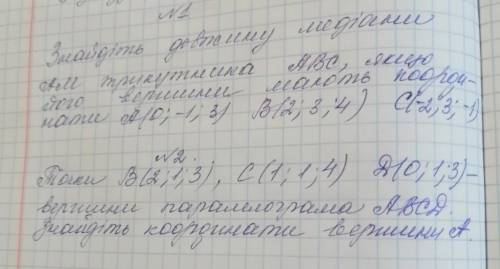 №1
Знайдіть довжину медіани
АМ трикутника АВС, якщо
його вершини мають коорди-
нати А(0; -1; 3) В(2; 3; 4) С(-2; 3; -1)
№2.
Точки В(2; 1; 3), С(1; 1; 4) Д(0; 1; 3)-
вершини паралелограма АВСД.
Знайдіть координати вершини А.